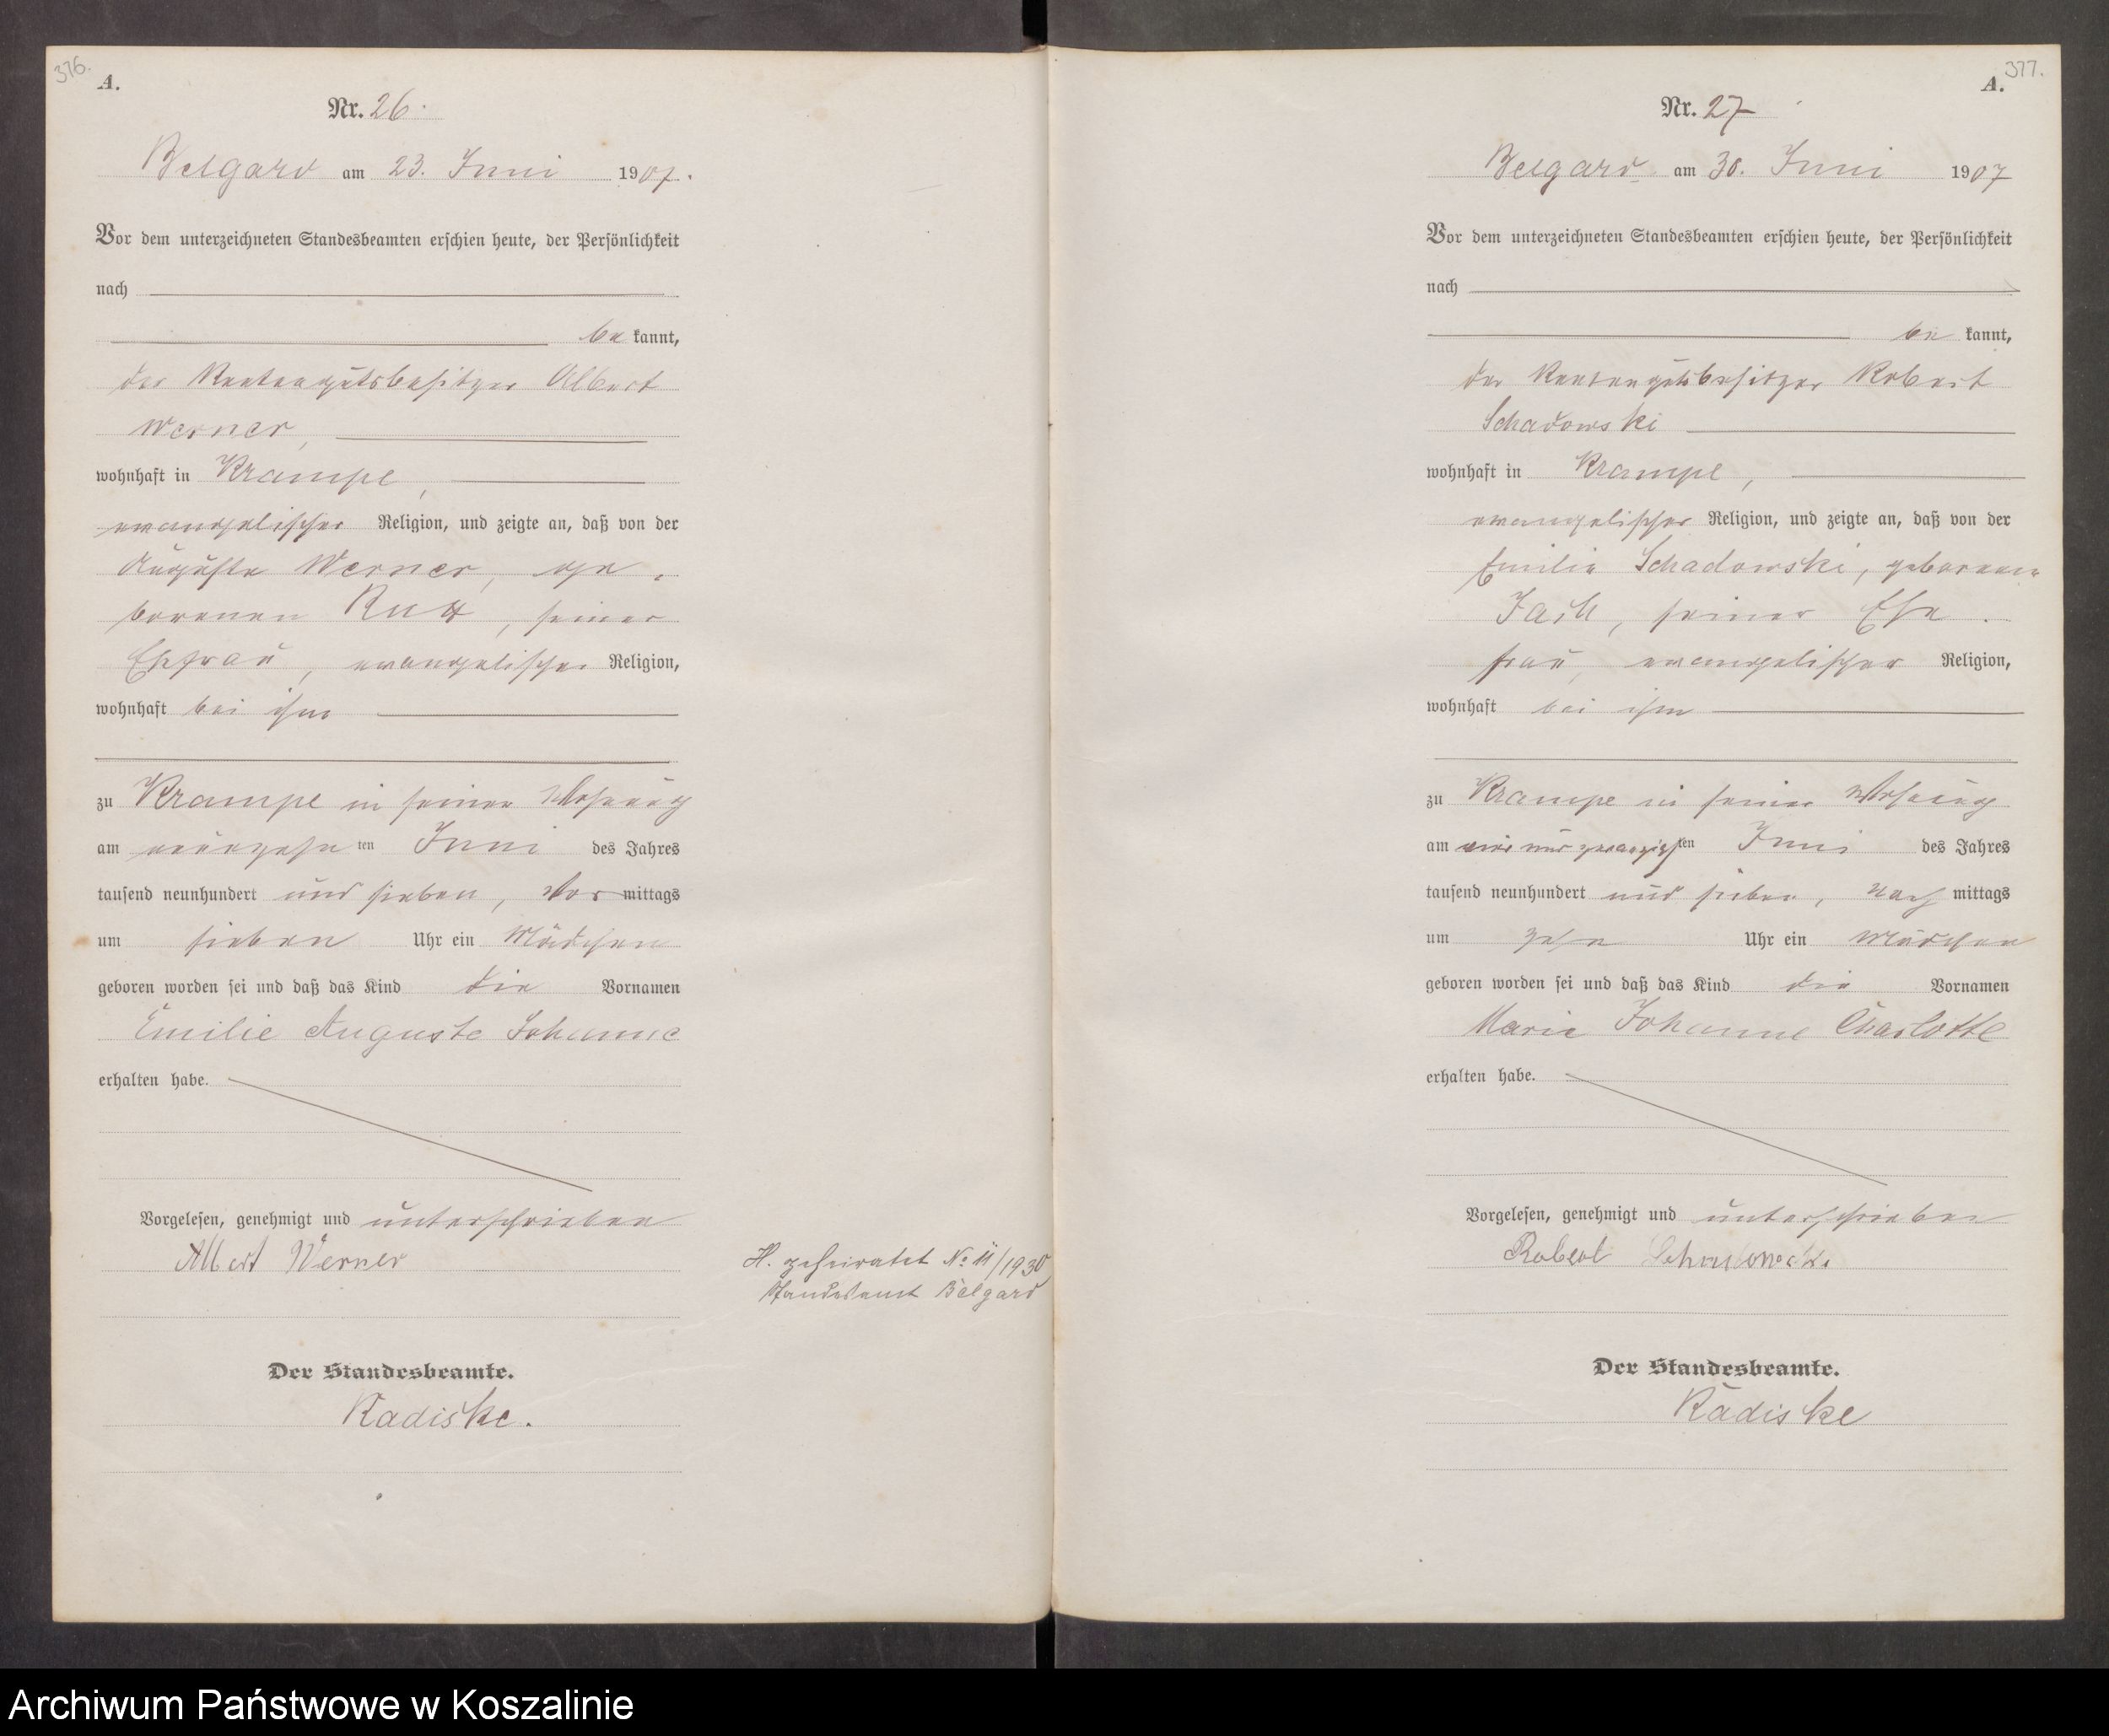 376.
A.
Nr. 26.
Belgard am 23. Juni 1907.
Vor dem unterzeichneten Standesbeamten erschien heute, der Persönlichkeit
nach
be kannt,
der Rentengutsbesitzer Albert
Werner,
wohnhaft in Krampe,
evangelischer Religion, und zeigte an, daß von der
Auguste Werner, ge-
borenen, seiner
Ehefrau, evangelischer Religion,
wohnhaft bei ihm
zu Krampe in seiner Wohnung
am neunzehnten Juni des Jahres
tausend neunhundert und sieben, Vor mittags
um sieben Uhr ein Mädchen
geboren worden sei und daß das Kind die Vornamen
Emilie Auguste Johanne
erhalten habe.
Vorgelesen, genehmigt und unterschrieben
Albert Werner
Der Standesbeamte.
Radiske.
H. geheiratet No 11/1930
Standesamt Belgard
377.
A.
Nr. 27
Belgard am 30. Juni 1907
Vor dem unterzeichneten Standesbeamten erschien heute, der Persönlichkeit
nach
be kannt,
der Rentengutsbesitzer Robert
Schadowski
wohnhaft in Krampe,
evangelischer Religion, und zeigte an, daß von der
Emilie Schadowski, geborenen
, seiner Ehe-
frau, evangelischer Religion,
wohnhaft bei ihm
zu Krampe in seiner Wohnung
am und zwanzigsten Juni des Jahres
tausend neunhundert und sieben, nach mittags
um zehn Uhr ein Mädchen
geboren worden sei und daß das Kind die Vornamen
Marie Johanne Charlotte
erhalten habe.
Vorgelesen, genehmigt und unterschrieben
Robert Schadowski
Der Standesbeamte.
Radiske
Archiwum Państwowe w Koszalinie